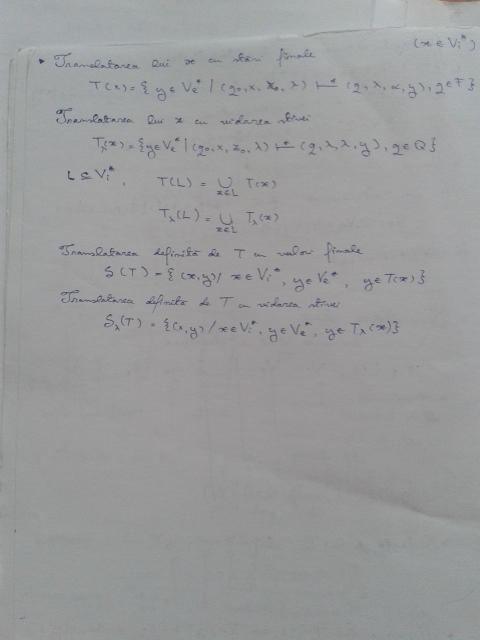 (x ∈ Vi*)
• Translatarea lui x cu stări finale
T(x) = { y ∈ Ve* | (q0, x, z0, λ) ⊢* (q, λ, α, y), q ∈ F}
Translatarea lui x cu vidarea stivei
Tλ(x) = {y ∈ Ve* | (q0, x, z0, λ) ⊢* (q, λ, λ, y), q ∈ Q}
L ⊆ Vi*, T(L) = ∪ T(x)
x∈L
Tλ(L) = ∪ Tλ(x)
x∈L
Translatarea definită de T cu valori finale
S(T) = { (x, y) / x ∈ Vi*, y ∈ Ve*, y ∈ T(x)}
Translatarea definită de T cu vidarea stivei
Sλ(T) = {(x, y) / x ∈ Vi*, y ∈ Ve*, y ∈ Tλ(x)}